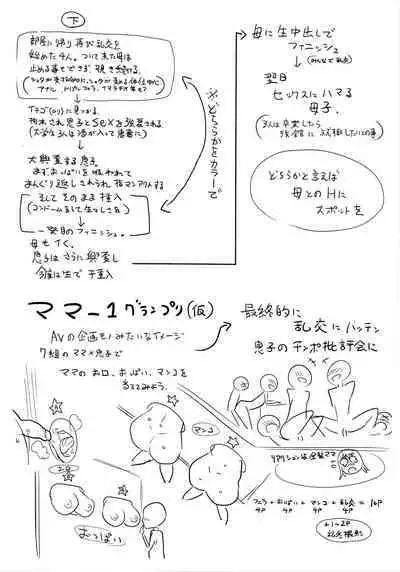 下
部屋に帰り再び乱交を
始めた4人。ついて来た母は
止める事もできず、覗き続ける。
アナル
↓
見つかる。
拘束され息子とSEXを強要される
(大学生3人は酒が入って悪ノリ)
↓
大興奮する息子
まずおっぱいを吸われて
まんぐり返しさせられ指マンクンニする
↓
そしてそのまま挿入
(コンドームをして生々しさを)
↓
一発目のフィニッシュ。
母もイく。
息子はさらに興奮し
今度は生で再挿入
※どちらかをカラーで
母に生中出しで
フィニッシュ
↓
翌日
セックスにハマる
母子。
(3人は卒業したら
どちらかと言えば
母とのHに
スポットを
ママ-1グランプリ(仮)
AVの企画モノみたいなイメージ
7組のママ×息子で
ママのお口、おっぱい、マンコを
当ててみよう。
最終的に
乱交にハッテン
息子のチンポ批評会に
お口
おっぱい
マンコ
リアクションは全裸ママ
フェラ+おっぱい+マンコ+乱交=16P
4P 4P 4P 4P
+1~2P